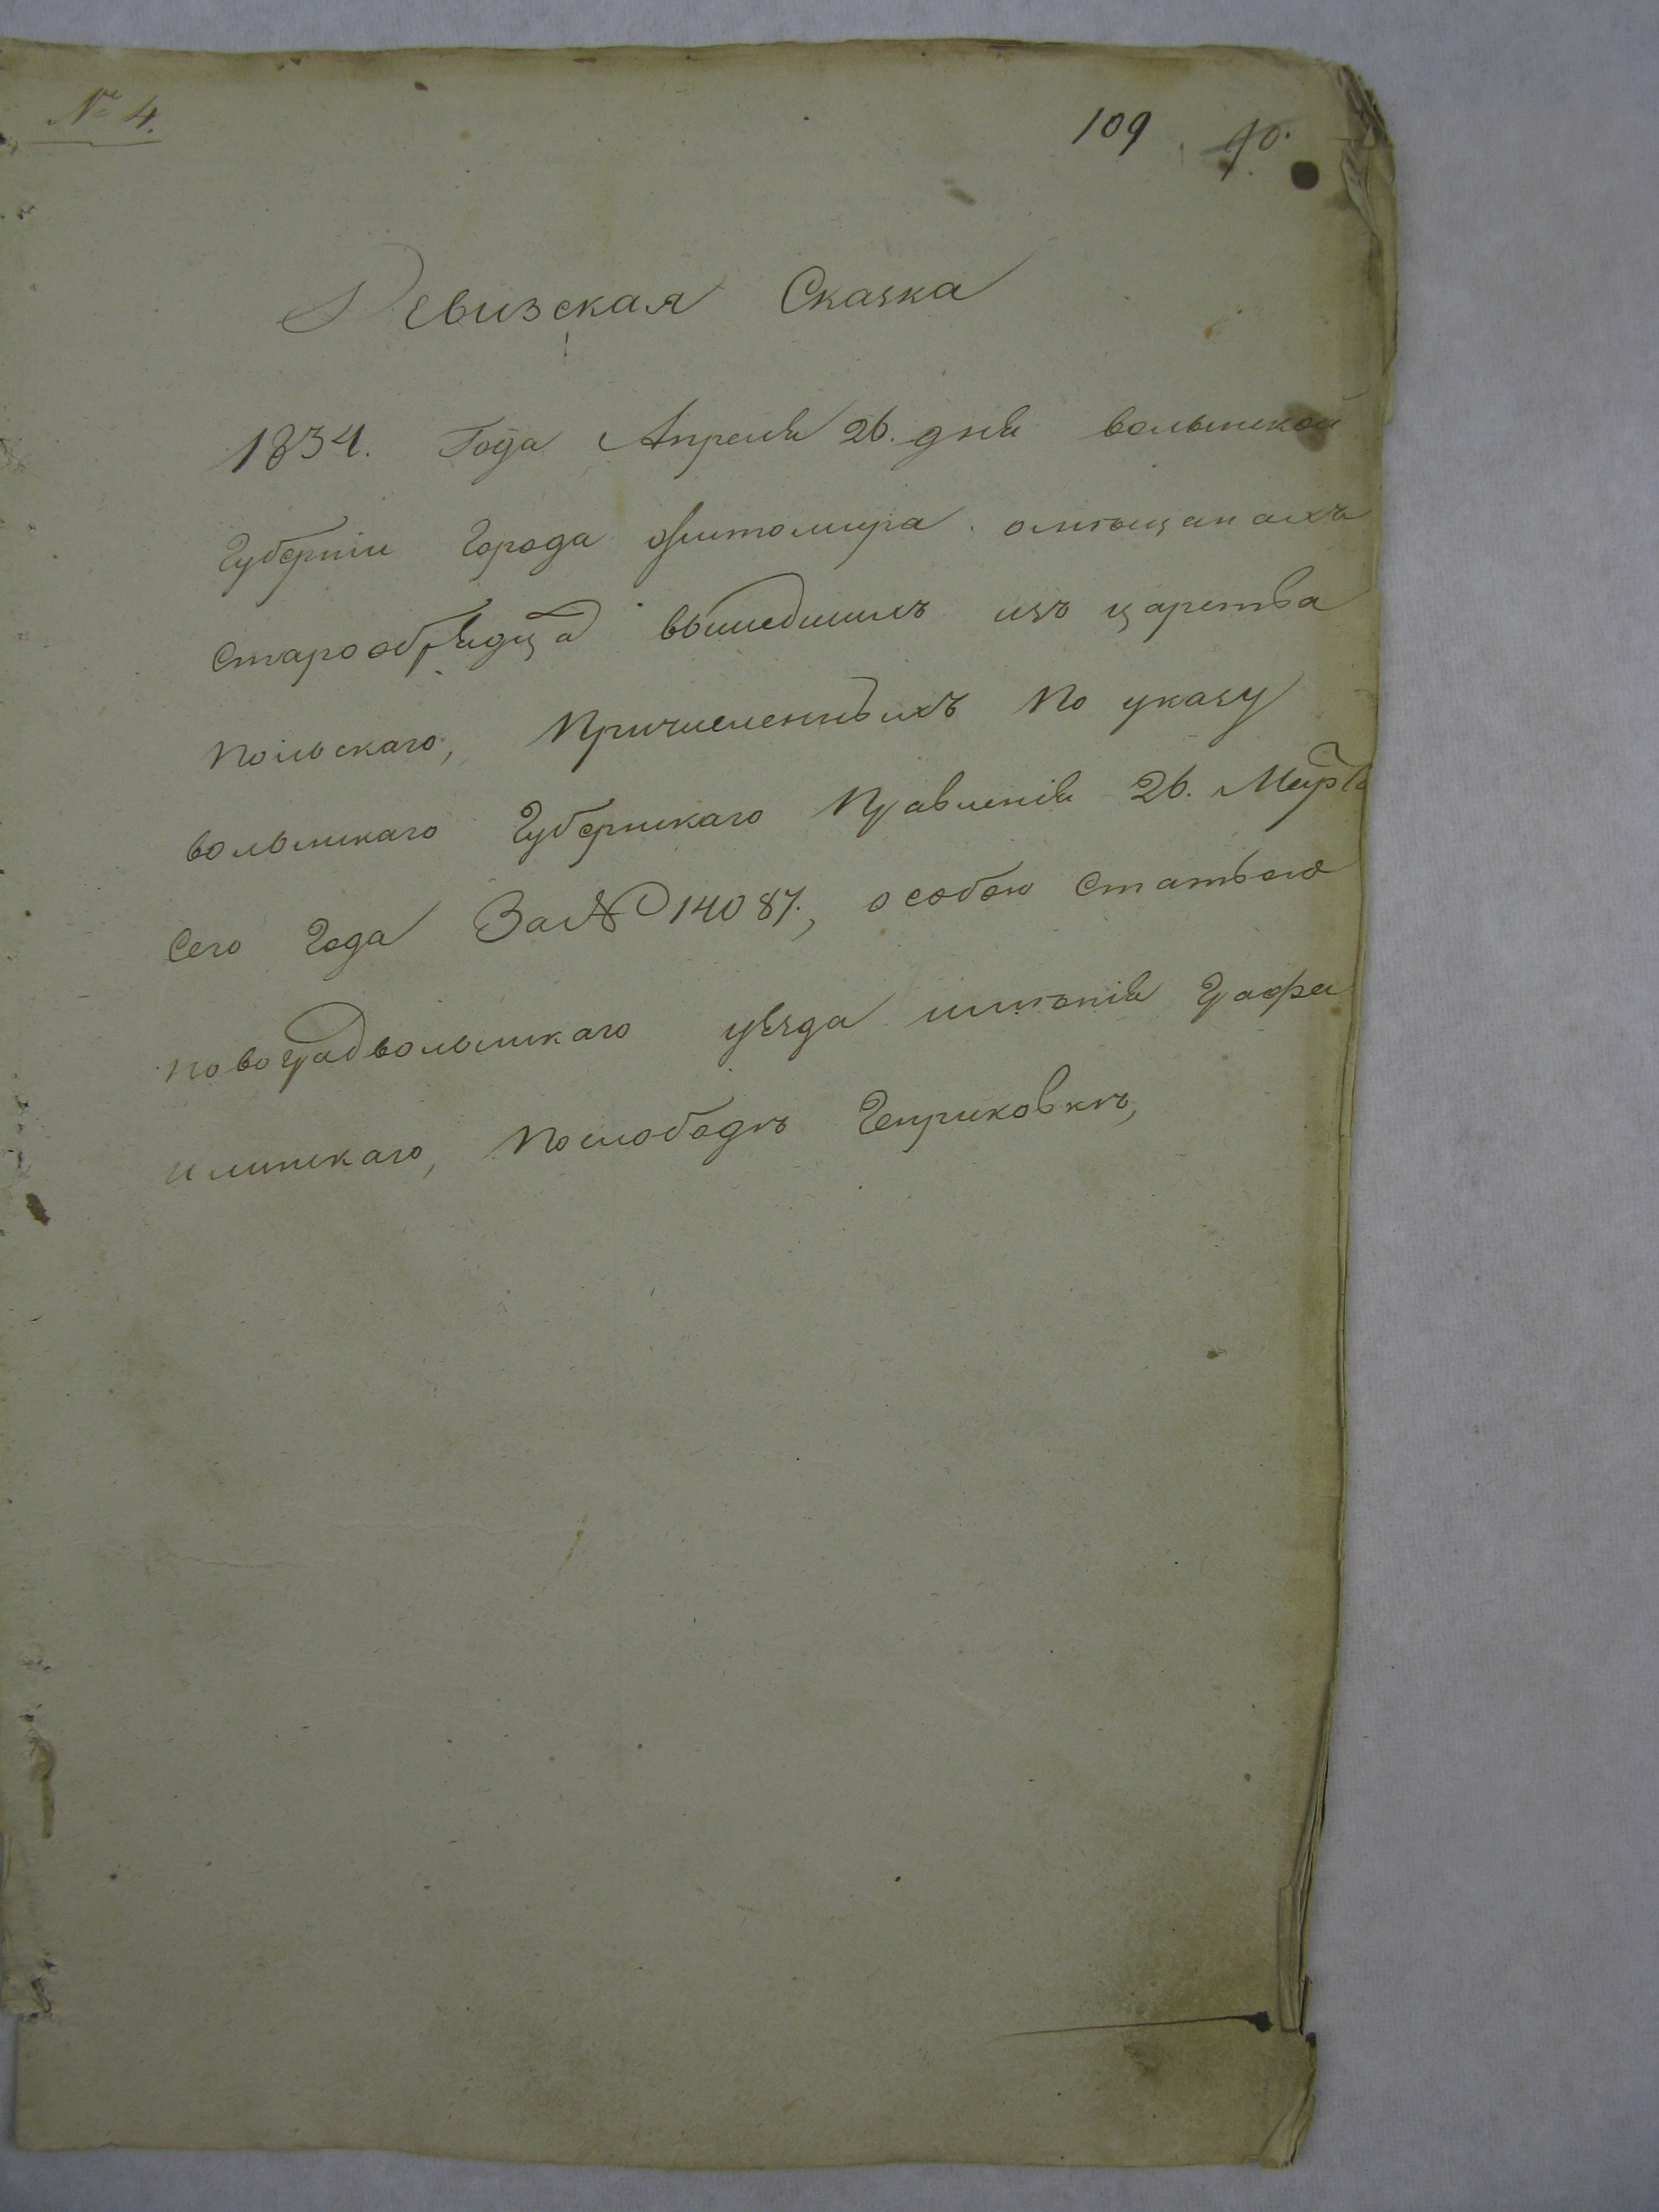 № 4.
109 40.
Ревизская Сказка
1834. Года Апреля 26. дня волынской
Губернии Города Житомира омѣщанахъ
старообрядцах вышедшихъ изъ царства
польскаго, Причисленныхъ По указу
волынскаго Губернскаго Правленія 26. Марта
сего Года За № 14087., особою статьею
новоградволынскаго уѣзда имѣнія Графа
илинскаго, Послободѣ Генриковкѣ,